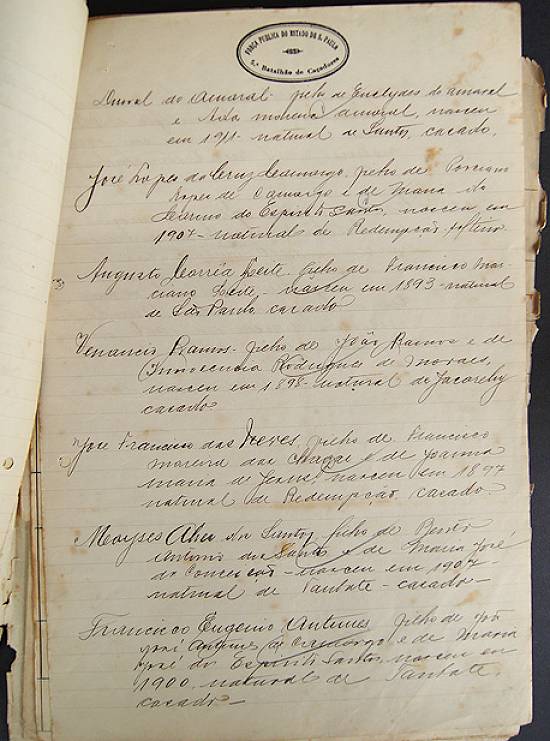 FORÇA PUBLICA DO ESTADO DE S. PAULO
5.º Batalhão de Caçadores
do Amaral filho de Euclydes do Amaral
e Moreira Amaral, nasceu
em 1911 - natural de Santos, casado.
José Lopes da Cruz Camargo, filho de
Lopes de Camargo e de Maria do
do Espirito Santo, nasceu em
1907 - natural de Redempção
Augusto Corrêa Leite filho de Francisco Mar-
ciano Leite - nasceu em 1893 - natural
de São Paulo casado
Venancio Ramos - filho de João Ramos e de
Innocencia Rodrigues de Moraes,
nasceu em 1898 - natural de Jacarehy
casado.
José Francisco das Neves, filho de Francisco
Moreira das Chagas e de Joanna
Maria de Jesus, nasceu em 1897
natural de Redempção casado.
Moyses do Santos filho de Bento
Antonio dos Santos e de Maria José
da Conceição - nasceu em 1907 -
natural de Taubate - casado -
Francisco Eugenio Antunes, filho de João
José Antunes de Camargo e de Maria
José do Espirito Santo, nasceu em
1900, natural de Taubate,
casado -